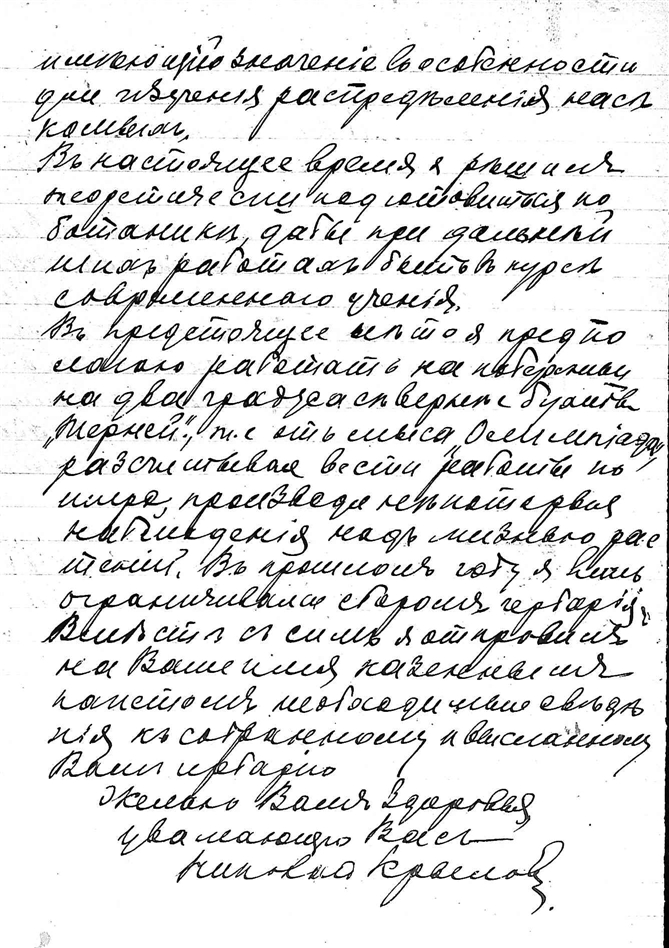 имеющій значеніе въ особенности
для изученія распредѣленія насѣ
комыхъ.
Въ настоящее время я рѣшилъ
теоретически подготовиться по
ботаникѣ, дабы при дальнѣй
шихъ работахъ быть въ курсѣ
современнаго ученія.
Въ предстоящее лѣто я предпо
лагаю работать на побережьи
на два градуса сѣвернѣе бухты
„Терней", т.е отъ мыса „Олимпіады"
разсчитывая вести работы по
шире, произведя нѣкоторыя
наблюденія надъ жизнью рас
теній. Въ прошломъ году я лишь
ограничивался сборомъ гербарія,
Вмѣстѣ съ симъ я отправилъ
на Ваше имя казеннымъ
пакетомъ необходимые свѣдѣ
нія къ собранному и высланному
Вамъ гербарію
Желаю Вамъ здоровья,
уважающій Васъ
Николай Крыловъ.